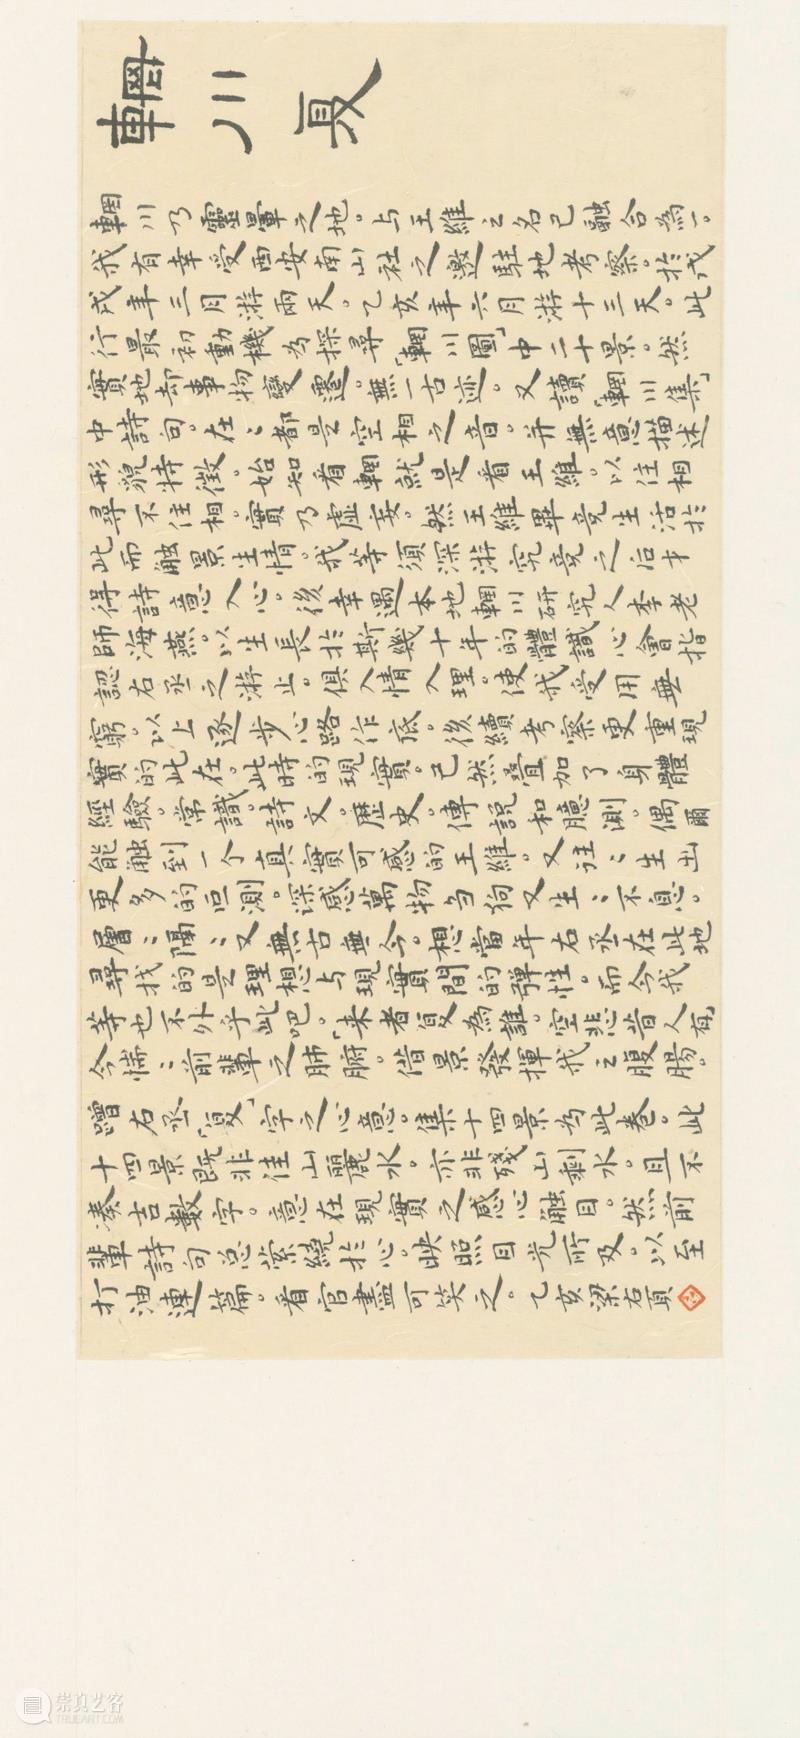 輞川复
輞川乃靈暈之地。与王維之名已融合為一。
我有幸受西安南山社之邀駐地考察。於戊
戌年三月游兩天。乙亥年六月游十三天。此
行最初動機為探尋「輞川圖」中二十景。然
實地却事物變遷。無一古迹。又讀「輞川集」
中詩句。在〻都是空相之音。并無意描述
形貌特徵。始知看輞就是看王維。以住相
尋不住相。實乃虛妄。然王維畢竟生活於
此而触景生情。我等須深游究竟之后才
得詩意入心。後幸遇本地輞川研究人李老
師海燕。以生長於斯幾十年的體識心會指
認右丞之游止。俱入情入理。使我受用無
窮。以上逐步心路作底。後續考察更重現
實的此在。此時的現實。已然叠加了身體
經驗。常識。詩文。歷史。傳說和臆測。偶爾
能触到一个真實可感的王維。又往〻生出
更多的叵測。深感萬物芻狗又生〻不息。
層〻隔〻又無古無今。想當年右丞在此地
尋找的是理想与現實間的彈性。而今我
等也不外乎此吧。「来者复為誰。空悲昔人有」
今惴〻前輩之肺腑。借景發揮我之腹腸。
蹭右丞「复」字之心意。集十四景為此卷。此
十四景既非佳山麗水。亦非殘山剩水。且不
湊吉數字。意在現實之感心触目。然前
輩詩句总萦繞於心。映照目光所及。以至
打油連篇。看官盡可笑之。乙亥梁右頁
崇真艺客
TRUEART.COM